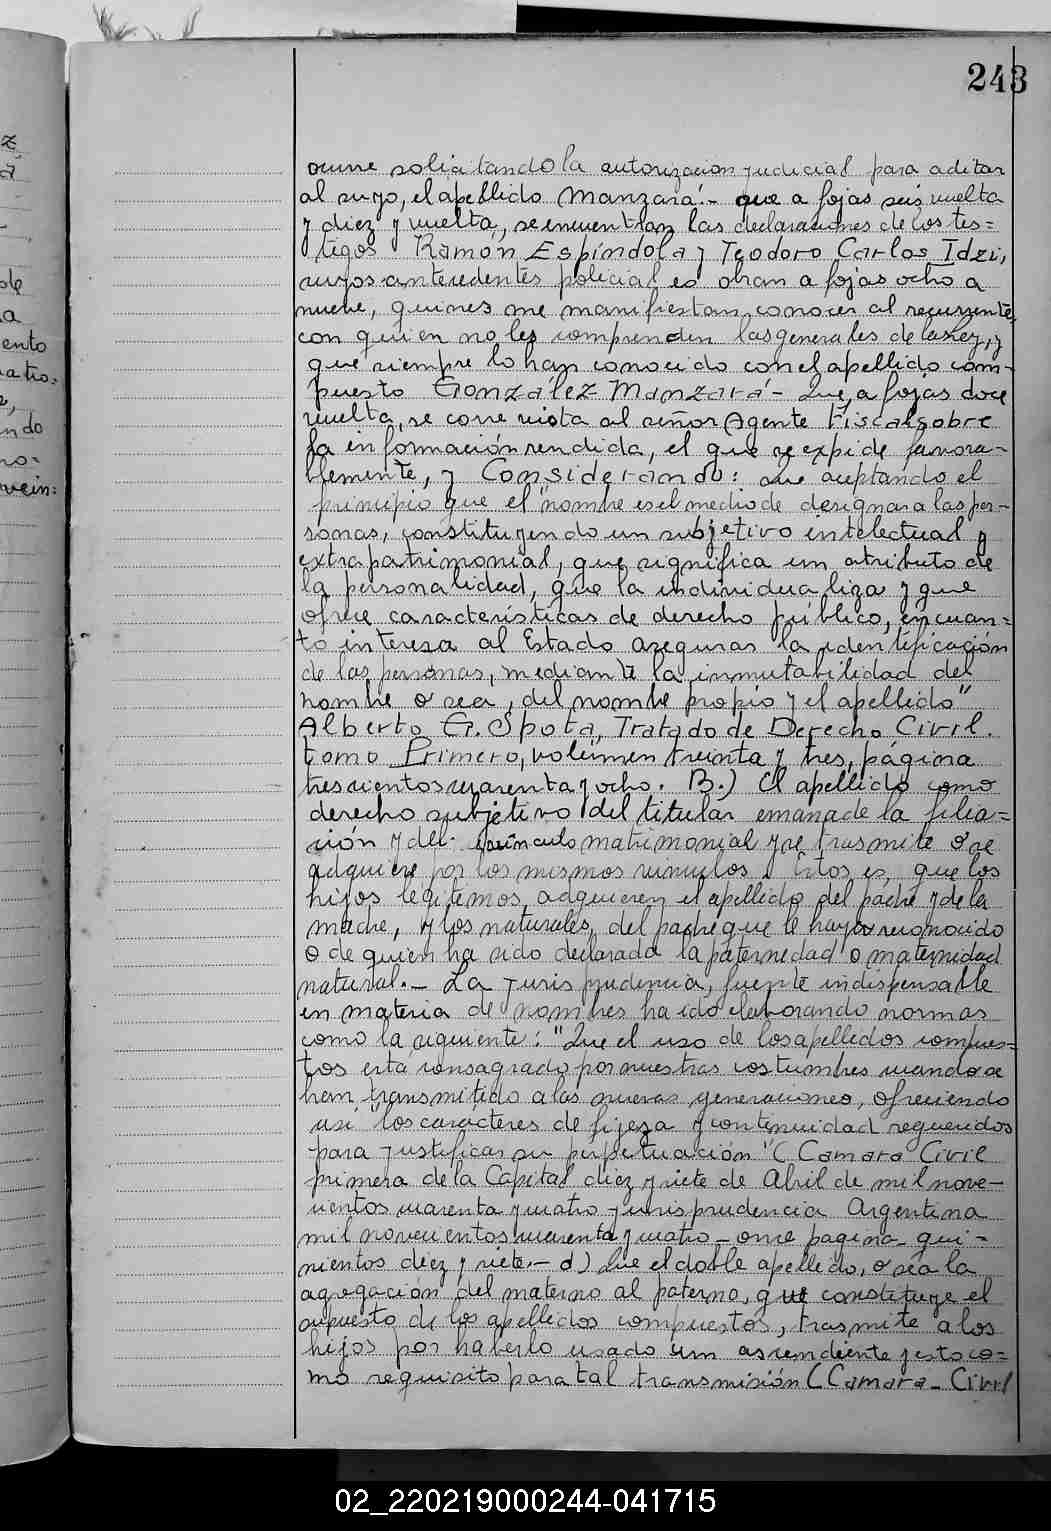 243
ocurre solicitando la autorización judicial para aditar
al suyo, el apellido Manzará.- que a fojas seis vuelta
y diez y vuelta, se encuentran las declaraciones de los tes=
tigos Ramón Espíndola y Teodoro Carlos Idzi,
cuyos antecedentes policiales obran a fojas ocho a
nueve, quienes me manifiestan conocer al recurrente,
con quien no les comprenden las generales de la ley, y
que siempre lo han conocido con el apellido com-
puesto González Manzará- Que, a fojas doce
vuelta, se corre vista al señor Agente Fiscal sobre
la información rendida, el que se expide favora-
blemente, y Considerando: Que aceptando el
principio que el "nombre es el medio de designar a las per-
sonas, constituyendo un subjetivo intelectual y
extrapatrimonial, que significa un atributo de
la personalidad, que la individualiza y que
ofrece características de derecho público, en cuan=
to interesa al Estado asegurar la identificación
de las personas, mediante la inmutabilidad del
nombre o sea, del nombre propio y el apellido"
Alberto G. Spota, Tratado de Derecho Civil.
tomo Primero, volúmen treinta y tres, página
trescientos cuarenta y ocho. B.) El apellido como
derecho subjetivo del titular emana de la filia=
ción y del vínculo matrimonial y se trasmite o se
adquiere por los mismos vínculos. Esto es, que los
hijos legítimos, adquieren el apellido del padre y de la
madre, y los naturales, del padre que le haya reconocido
o de quien ha sido declarada la paternidad o maternidad
natural.- La jurisprudencia, fuente indispensable
en materia de nombres ha ido elaborando normas
como la siguiente: "Que el uso de los apellidos compues=
tos esta consagrado por nuestras costumbres cuando se
han transmitido a las nuevas generaciones, ofreciendo
así los carácteres de fijeza y continuidad requeridos
para justificar su perpetuación "(Camara Civil
primera de la Capital diez y siete de Abril de mil nove-
cientos cuarenta y cuatro jurisprudencia Argentina
mil novecientos cuarenta y cuatro - once pagina - qui-
nientos diez y siete.- d) Que el doble apellido, o sea la
agregación del materno al paterno, que constituye el
supuesto de los apellidos compuestos, trasmite a los
hijos por haberlo usado un ascendiente y esto co=
mo requisito para tal transmisión (Camara - Civil
ento
ndo
02_220219000244-041715